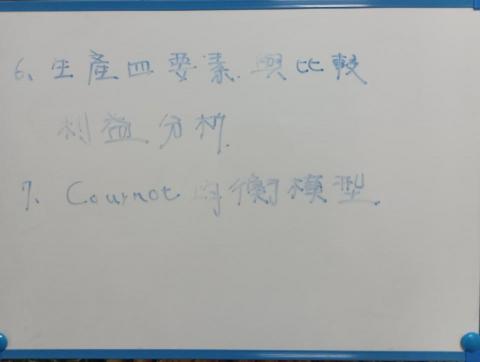 6、生產四要素與比較
利益分析.
7、Cournot 均衡模型.